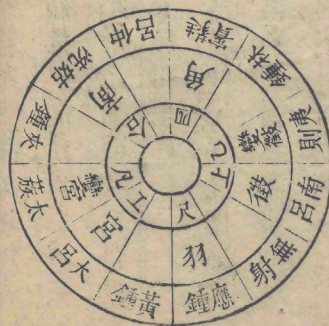 黃鍾
大呂
太蔟
夾鍾
姑洗
仲呂
蕤賓
林鍾
夷則
南呂
無射
應鍾
宮
變宮
商
角
變徵
徵
羽
尺
工
凡
合
四
乙
上